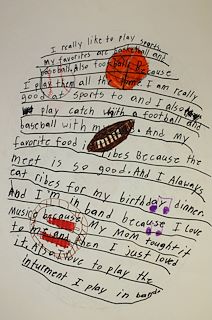 I really like to play sports
my favorites are basketball and
baseball. Also football because
I play them all the time. I am really
good at sports to and I also
play catch with a football and
baseball with my And my
favorite food ribes Because the
meet is so good. And I Alaways
eat ribes for my birthday dinner.
And I'm in band because I love
Music because My MoM tought it
to me and then I just loved
it. Also I love to play the
intument I play in band